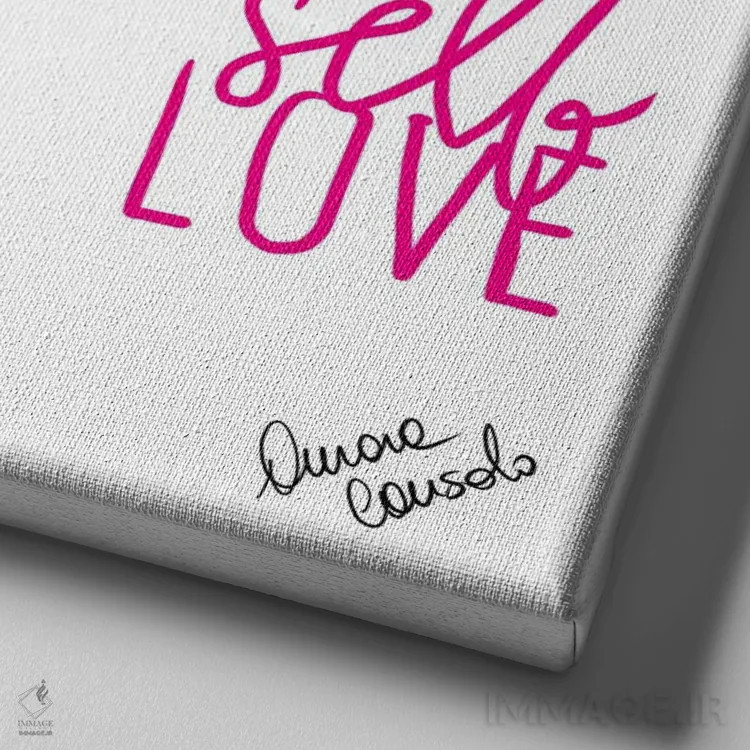 self
LOVE
Aurora
Consolo
IMMAGE
IMMAGE.IR
IMMAGE.IR